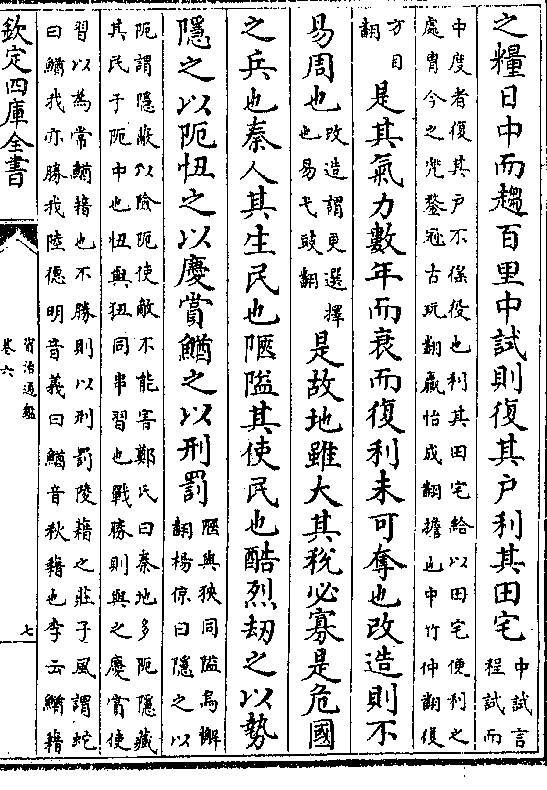 之糧日中而趨百里中試則復其户利其田宅
中試言
程試而
中度者復其戶不徭役也利其田宅給以田宅便利之
處胄今之兜鍪冠古玩翻羸怡成翻擔也中竹仲翻復
方目
翻
是其氣力數年而衰而復利未可奪也改造則不
易周也
改造謂更選擇
也易弋豉翻
是故地雖大其稅必寡是危國
之兵也秦人其生民也陿隘其使民也酷烈劫之以勢
隱之以阨忸之以慶賞鰌之以刑罰
陿與狹同隘烏懈
翻楊倞曰隱之以
阨謂隱蔽以險阨使敵不能害鄭氏曰秦地多阨隱藏
其民于阨中也忸與狃同串習也戰勝則與之慶賞使
習以為常鰌藉也不勝則以刑罰陵藉之莊子風謂蛇
曰鰌我亦勝我陸德明音義曰鰌音秋藉也李云鰌藉
欽定四庫全書
資治通鑑
卷六
七